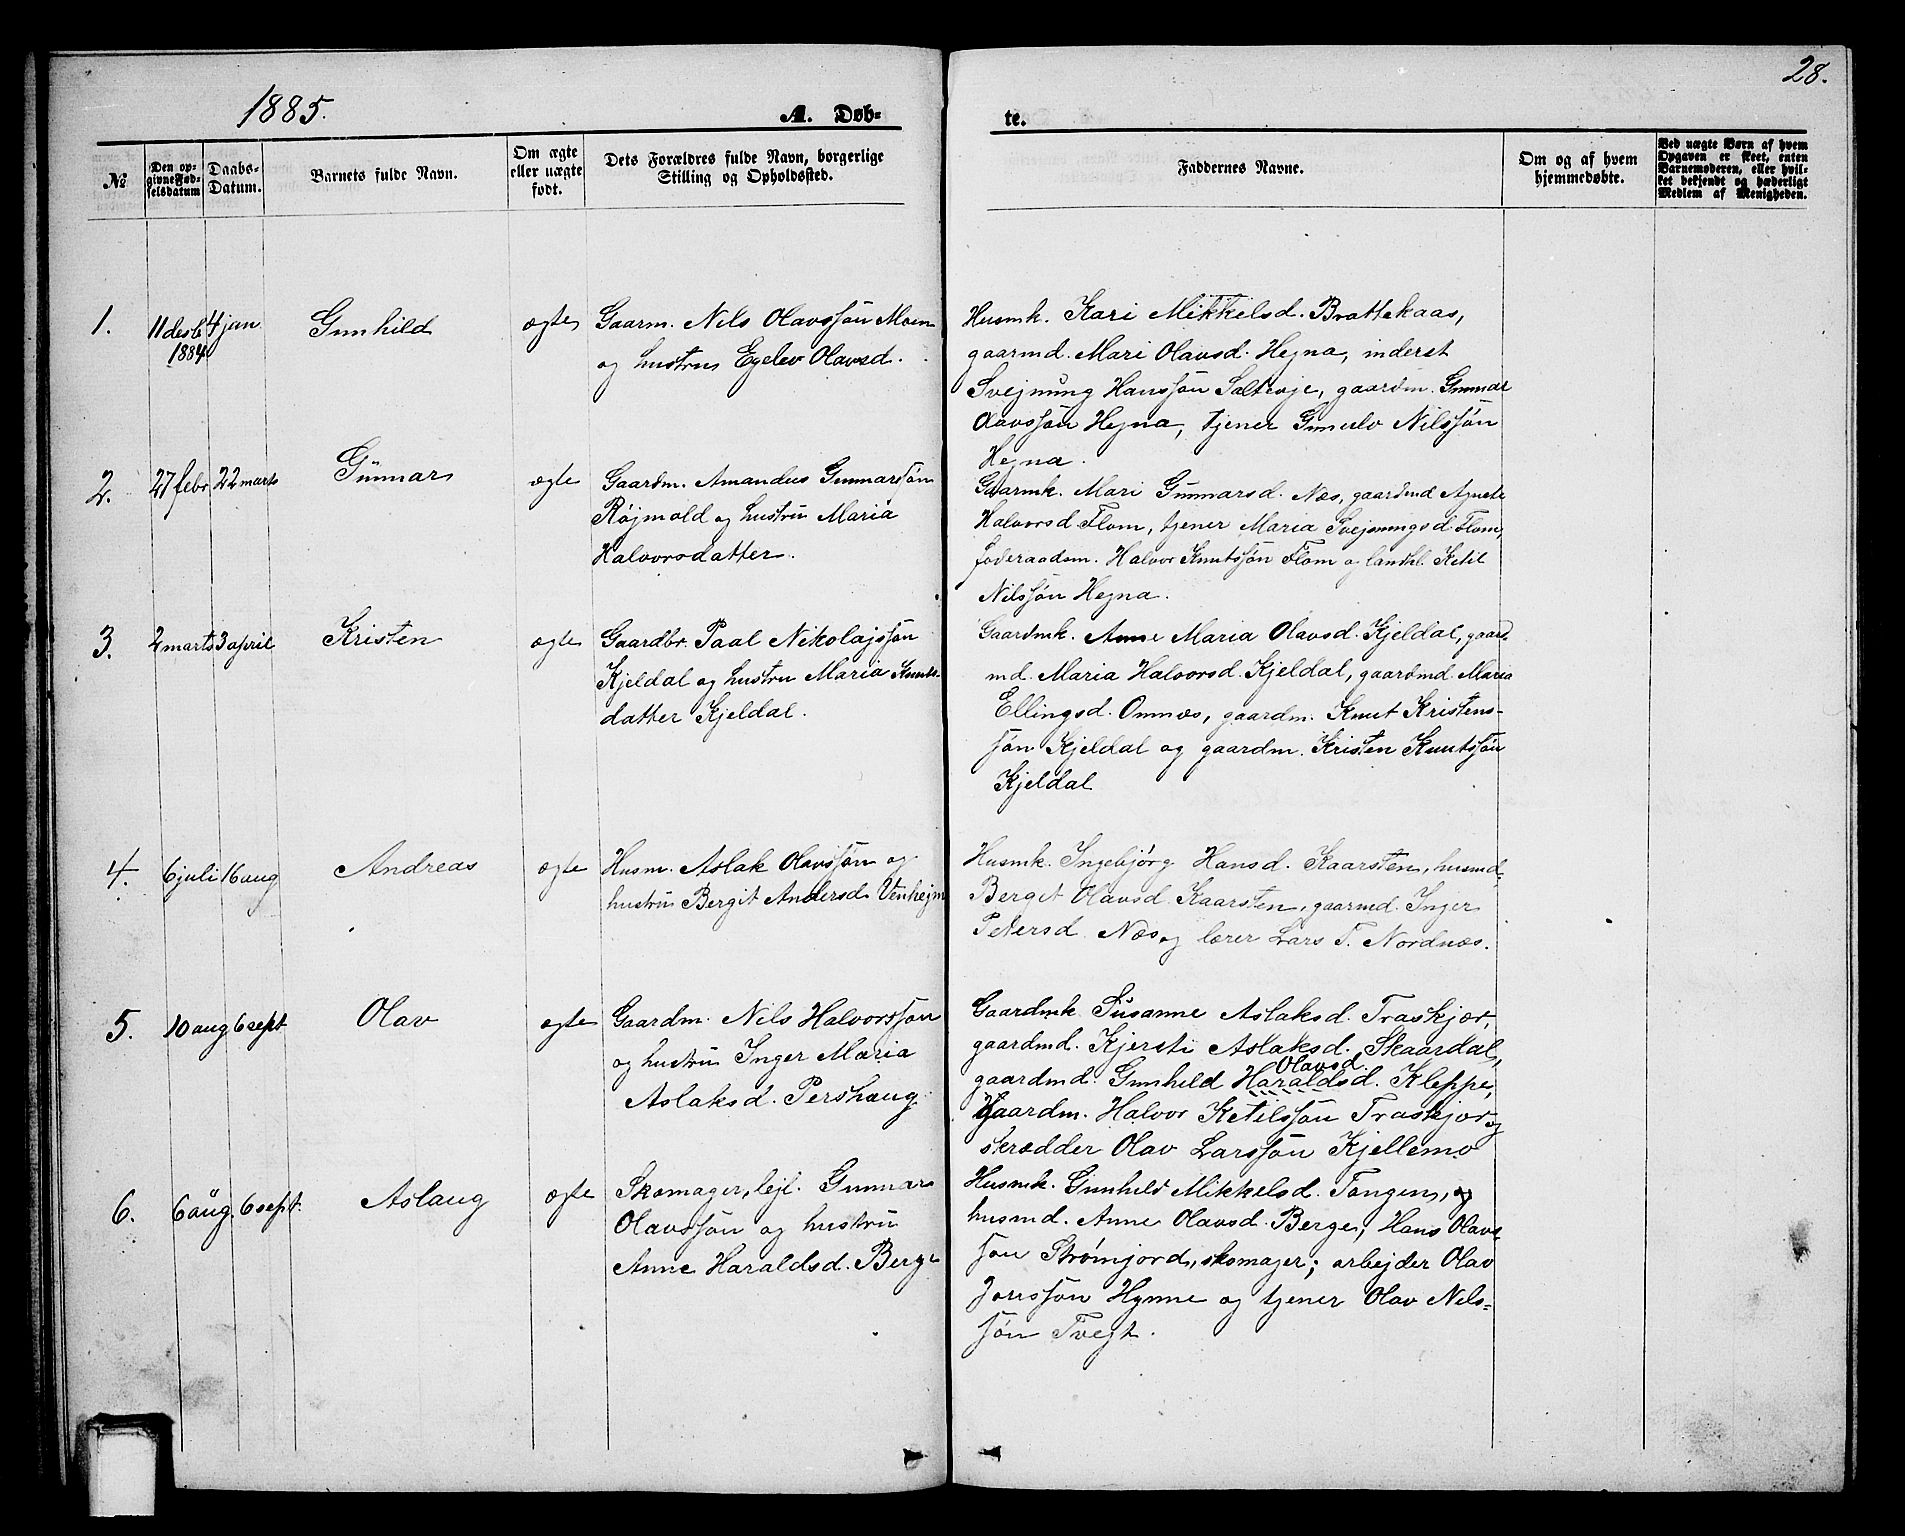 28.
1885.
A. Døb-
te.
№
Den op-
givne Fød-
selsdatum
Daabs-
Datum.
Barnets fulde Navn.
Om ægte
eller uægte
født.
Dets Forældres fulde Navn, borgerlige
Stilling og Opholdssted.
Faddernes Navne.
Om og af hvem
hjemmedøbte.
Ved uægte Børn af hvem
Opgaven er skeet, enten
Barnemoderen, eller hvil-
ket bekjendt og hæderligt
Medlem af Menigheden.
1.
11 desbr
1884
4 jan
Gunhild
ægte
Gaarm. Nils Olavssøn Moen
og hustru Egelev Olavsd.
Husmk. Kari Mikkelsd. Brattekaas,
gaarmd. Mari Olavsd. Hegna, inderst
Svejnung Hanssøn Saltevje, gaardm. Gunnar
Olavssøn Hegna, tjener Gunulv Nilssøn
Hegna.
2.
27 febr
22 marts
Gunnar
ægte
Gaardm. Amandus Gunnarssøn
Røjmold og hustru Maria
Halvorsdatter.
Gaarmk. Mari Gunnarsd. Næs, gaardmd Agnete
Halvorsd. Flom, tjener Maria Svejnungsd. Flom,
foderaadsm. Halvor Knutssøn Flom og landhl. Ketil
Nilssøn Hegna.
3.
2 marts
3 april
Kristen
ægte
Gaardbr. Paal Nikolajssøn
Kjeldal og hustru Maria Knuts-
datter Kjeldal.
Gaardmk. Anne Maria Olavsd. Kjeldal, gaard
md. Maria Halvorsd. Kjeldal, gaardmd. Maria
Ellingsd. Omnæs, gaardm. Knut Kristens-
søn Kjeldal og gaardm. Kristen Knutssøn
Kjeldal
4.
6 juli
16 aug
Andreas
ægte
Husm. Aslak Olavssøn og
hustru Bergit Andersd. Venhejm
Husmk. Ingebjörg Hansd. Kaarsten, husmd.
Bergit Olavsd. Kaarsten, gaarmd. Inger
Petersd Næs og lærer Lars T. Nordnæs.
5.
10 aug
6 sept
Olav
ægte
Gaardm. Nils Halvorssøn
og hustru Inger Maria
Aslaksd. Pershaug
Gaardmk Susanne Aslaksd. Traskjær,
gaardmd. Kjersti Aslaksd. Skaardal,
Olavsd.
gaardmd. Gunhild Haraldsd. Kleppe,
gaardm. Halvor Ketilssøn Traskjær og
skrædder Olav Larssøn Kjellemo
6.
6 aug.
6 sept.
Aslaug
ægte
Skomager, lejl. Gunnar
Olavssøn og hustru
Anne Haraldsd. Berge
Husmk. Gunhild Mikkelsd. Tangen, og
husmd. Anne Olavsd. Berge, Hans Olavs
søn Strömjord, skomager; arbejder Olav
Jonssøn Hynne og tjener Olav Nils-
søn Tvejt.